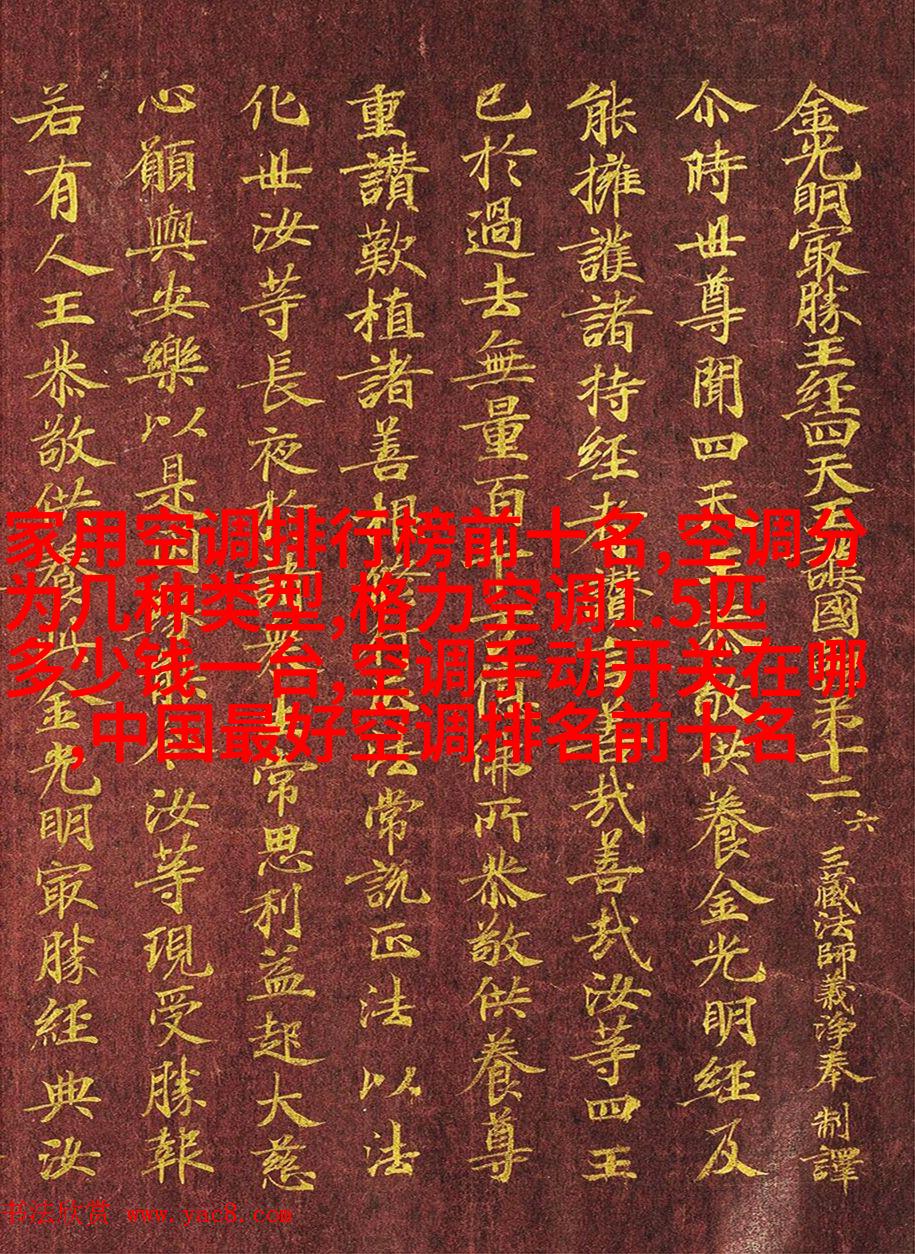 金光明㝡勝王経四天王護國品苐十二 六 三藏法師義淨奉 制譯
尒時世尊聞四天王恭敬供養金光明經及
能擁護諸持経者讚言善哉善哉汝等四王
已於過去無量百千億佛所恭敬供養尊
重讚歎植諸善根修行正法常說正法以法
化世汝等長夜於諸衆生常思利益起大慈
心願與安樂以是因緣令汝等現受勝報
若有人王恭敬供養此金光明㝡勝経典汝
家用空调排行榜前十名,空调分
为几种类型,格力空调1.5匹
多少钱一台,空调手动开关在哪
,中国最好空调排名前十名
书法欣赏 www.yac8.com